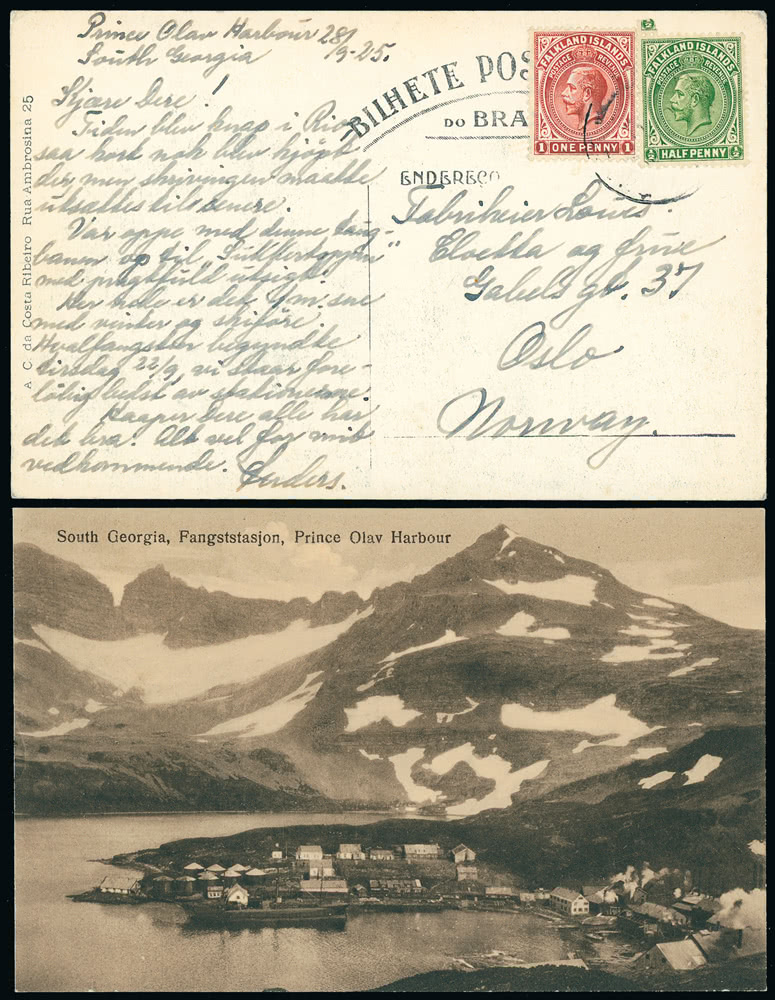 Prince Olav Harbour 28/
South Georgia 9-25.
Kjære dere!
Tiden blev knap i Rio,
saa kort nok blev kjøpt
der men skrivingen maatte
utsættes til senere.
Var oppe med denne taug-
banen op til "Sukkertoppen"
med pragtfuld utsigt.
Her nede er det 1 m. sne
med vinter og skiføre.
Hvalfangsten begyndte
tirsdag 22/9, vi staar fore-
løbig bedst av stationerne.
Haaper dere alle har
det bra. Alt vel for mit
vedkommende.
Anders.
A. C. da Costa Ribeiro Rua Ambrosina 25
BILHETE POS
DO BRA
ENDEREÇO
FALKLAND ISLANDS
POSTAGE REVENUE
1 ONE PENNY 1
FALKLAND ISLANDS
POSTAGE REVENUE
½ HALF PENNY ½
Fabrikeier
og frue
Gabels gt. 37
Oslo
Norway.
South Georgia, Fangststasjon, Prince Olav Harbour